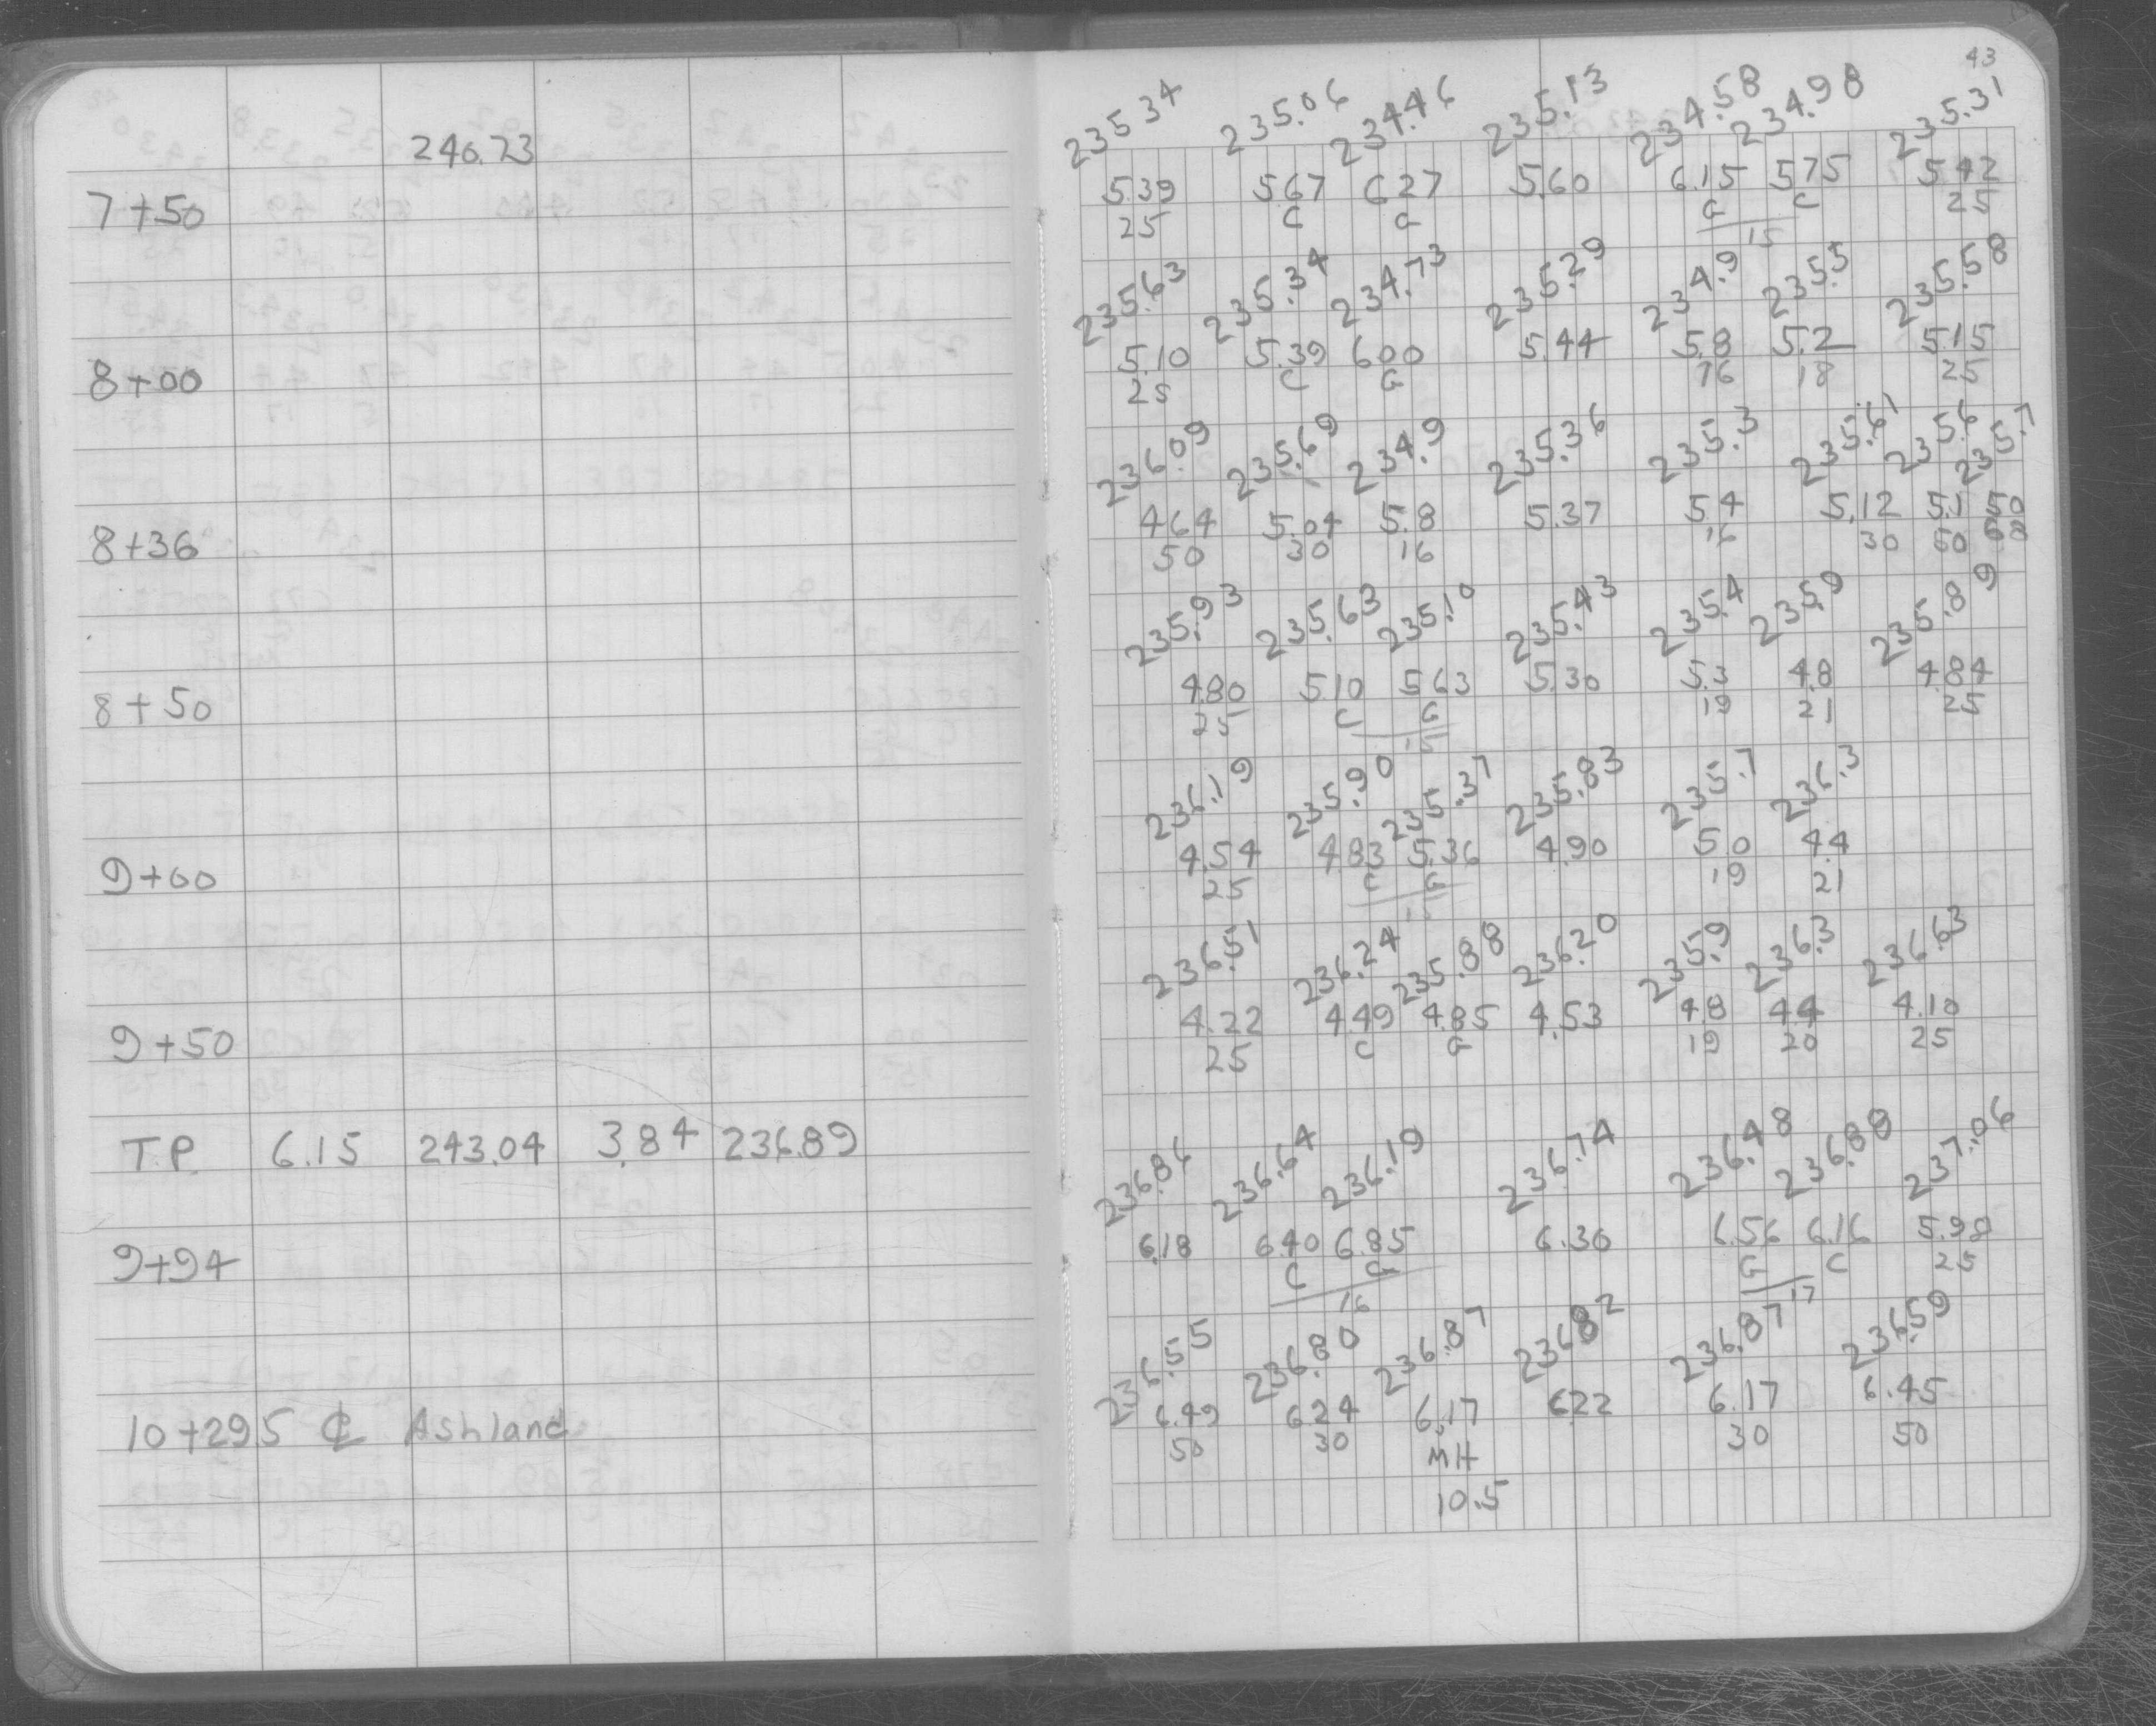 43
240.73
235.34 235.06 234.46 235.13 234.58 234.98 235.31
7+50 5.39 5.67 6.27 5.60 6.15 5.75 5.42
25 C G G C 25
15
235.63 235.34 234.73 235.29 234.9 235.5 235.58
8+00 5.10 5.39 6.00 5.44 5.8 5.2 5.15
25 C G 16 18 25
236.09 235.69 234.9 235.36 235.3 235.61 235.6 235.7
8+36 4.64 5.04 5.8 5.37 5.4 5.12 5.1 5.0
50 30 16 16 30 50 68
235.93 235.63 235.10 235.43 235.4 235.9 235.89
8+50 4.80 5.10 5.63 5.30 5.3 4.8 4.84
25 C G 19 21 25
236.19 235.90 235.37 235.83 235.7 236.3
9+00 4.54 4.83 5.36 4.90 5.0 4.4
25 C G 19 21
236.51 236.24 235.88 236.20 235.9 236.3 236.63
9+50 4.22 4.49 4.85 4.53 4.8 4.4 4.10
25 C G 19 20 25
T.P. 6.15 243.04 3.84 236.89
236.86 236.64 236.19 236.74 236.48 236.88 237.06
9+94 6.18 6.40 6.85 6.30 6.56 6.16 5.98
C G G C 25
16 17
236.55 236.80 236.87 236.82 236.87 236.59
10+29.5 ℄ Ashland 6.49 6.24 6.17 6.22 6.17 6.45
50 30 MH 30 50
10.5